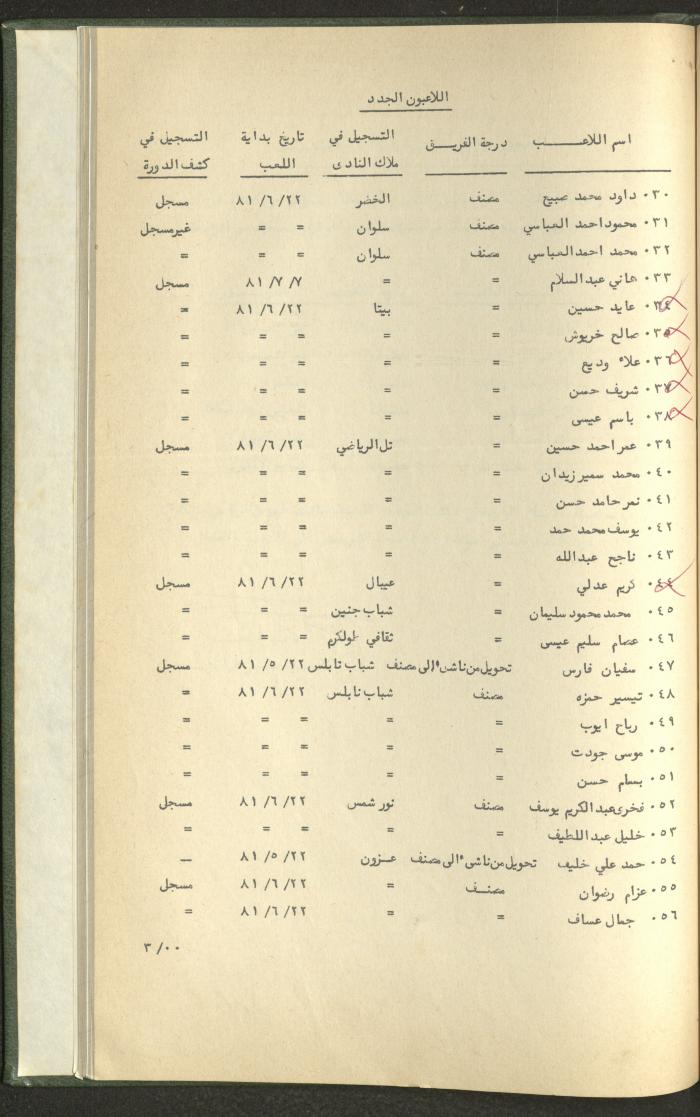 اللاعبون الجدد
اسم اللاعـــب درجة الفريـــق التسجيل في ملاك النادى تاريخ بداية اللعب التسجيل في كشف الدورة
٠٣٠ داود محمد صبيح مصنف الخضر ٨١/٦/٢٢ مسجل
٠٣١ محمود احمد العباسي مصنف سلوان = = غير مسجل
٠٣٢ محمد احمد العباسي مصنف سلوان = = =
٠٣٣ هاني عبد السلام = = ٨١/٧/٧ مسجل
٠٣٤ عايد حسين = بيتا ٨١/٦/٢٢ =
٠٣٥ صالح خريوش = = = = =
٠٣٦ علاء وديع = = = = =
٠٣٧ شريف حسن = = = = =
٠٣٨ باسم عيسى = = = = =
٠٣٩ عمر احمد حسين = تل الرياضي ٨١/٦/٢٢ مسجل
٠٤٠ محمد سمير زيدان = = = = =
٠٤١ نمر حامد حسن = = = = =
٠٤٢ يوسف محمد حمد = = = = =
٠٤٣ ناجح عبدالله = = = = =
٠٤٤ كريم عدلي = عيبال ٨١/٦/٢٢ مسجل
٠٤٥ محمد محمود سليمان = شباب جنين = = =
٠٤٦ عصام سليم عيسى = ثقافي طولكرم = = =
٠٤٧ سفيان فارس تحويل من ناشىء الى مصنف شباب نابلس ٨١/٥/٢٢ مسجل
٠٤٨ تيسير حمزه مصنف شباب نابلس ٨١/٦/٢٢ =
٠٤٩ رباح ايوب = = = = =
٠٥٠ موسى جودت = = = = =
٠٥١ بسام حسن = = = = =
٠٥٢ فخرى عبد الكريم يوسف مصنف نور شمس ٨١/٦/٢٢ مسجل
٠٥٣ خليل عبد اللطيف = = = = =
٠٥٤ حمد علي خليف تحويل من ناشىء الى مصنف عـزون ٨١/٥/٢٢ —
٠٥٥ عزام رضوان مصنـف = ٨١/٦/٢٢ مسجل
٠٥٦ جمال عساف = = ٨١/٦/٢٢ =
٣/٠٠